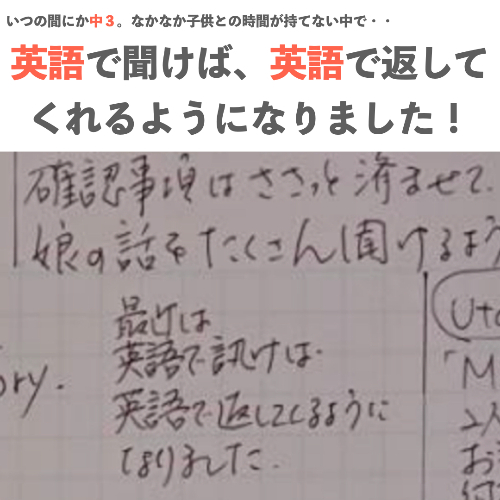 いつの間にか中３。なかなか子供との時間が持てない中で・・
英語で聞けば、英語で返して
くれるようになりました！
確認事項はささっと済ませて、
娘の話をたくさん聞けるよう
最近は
英語で訊けば
英語で返してくるように
なりました.
ory.
「M